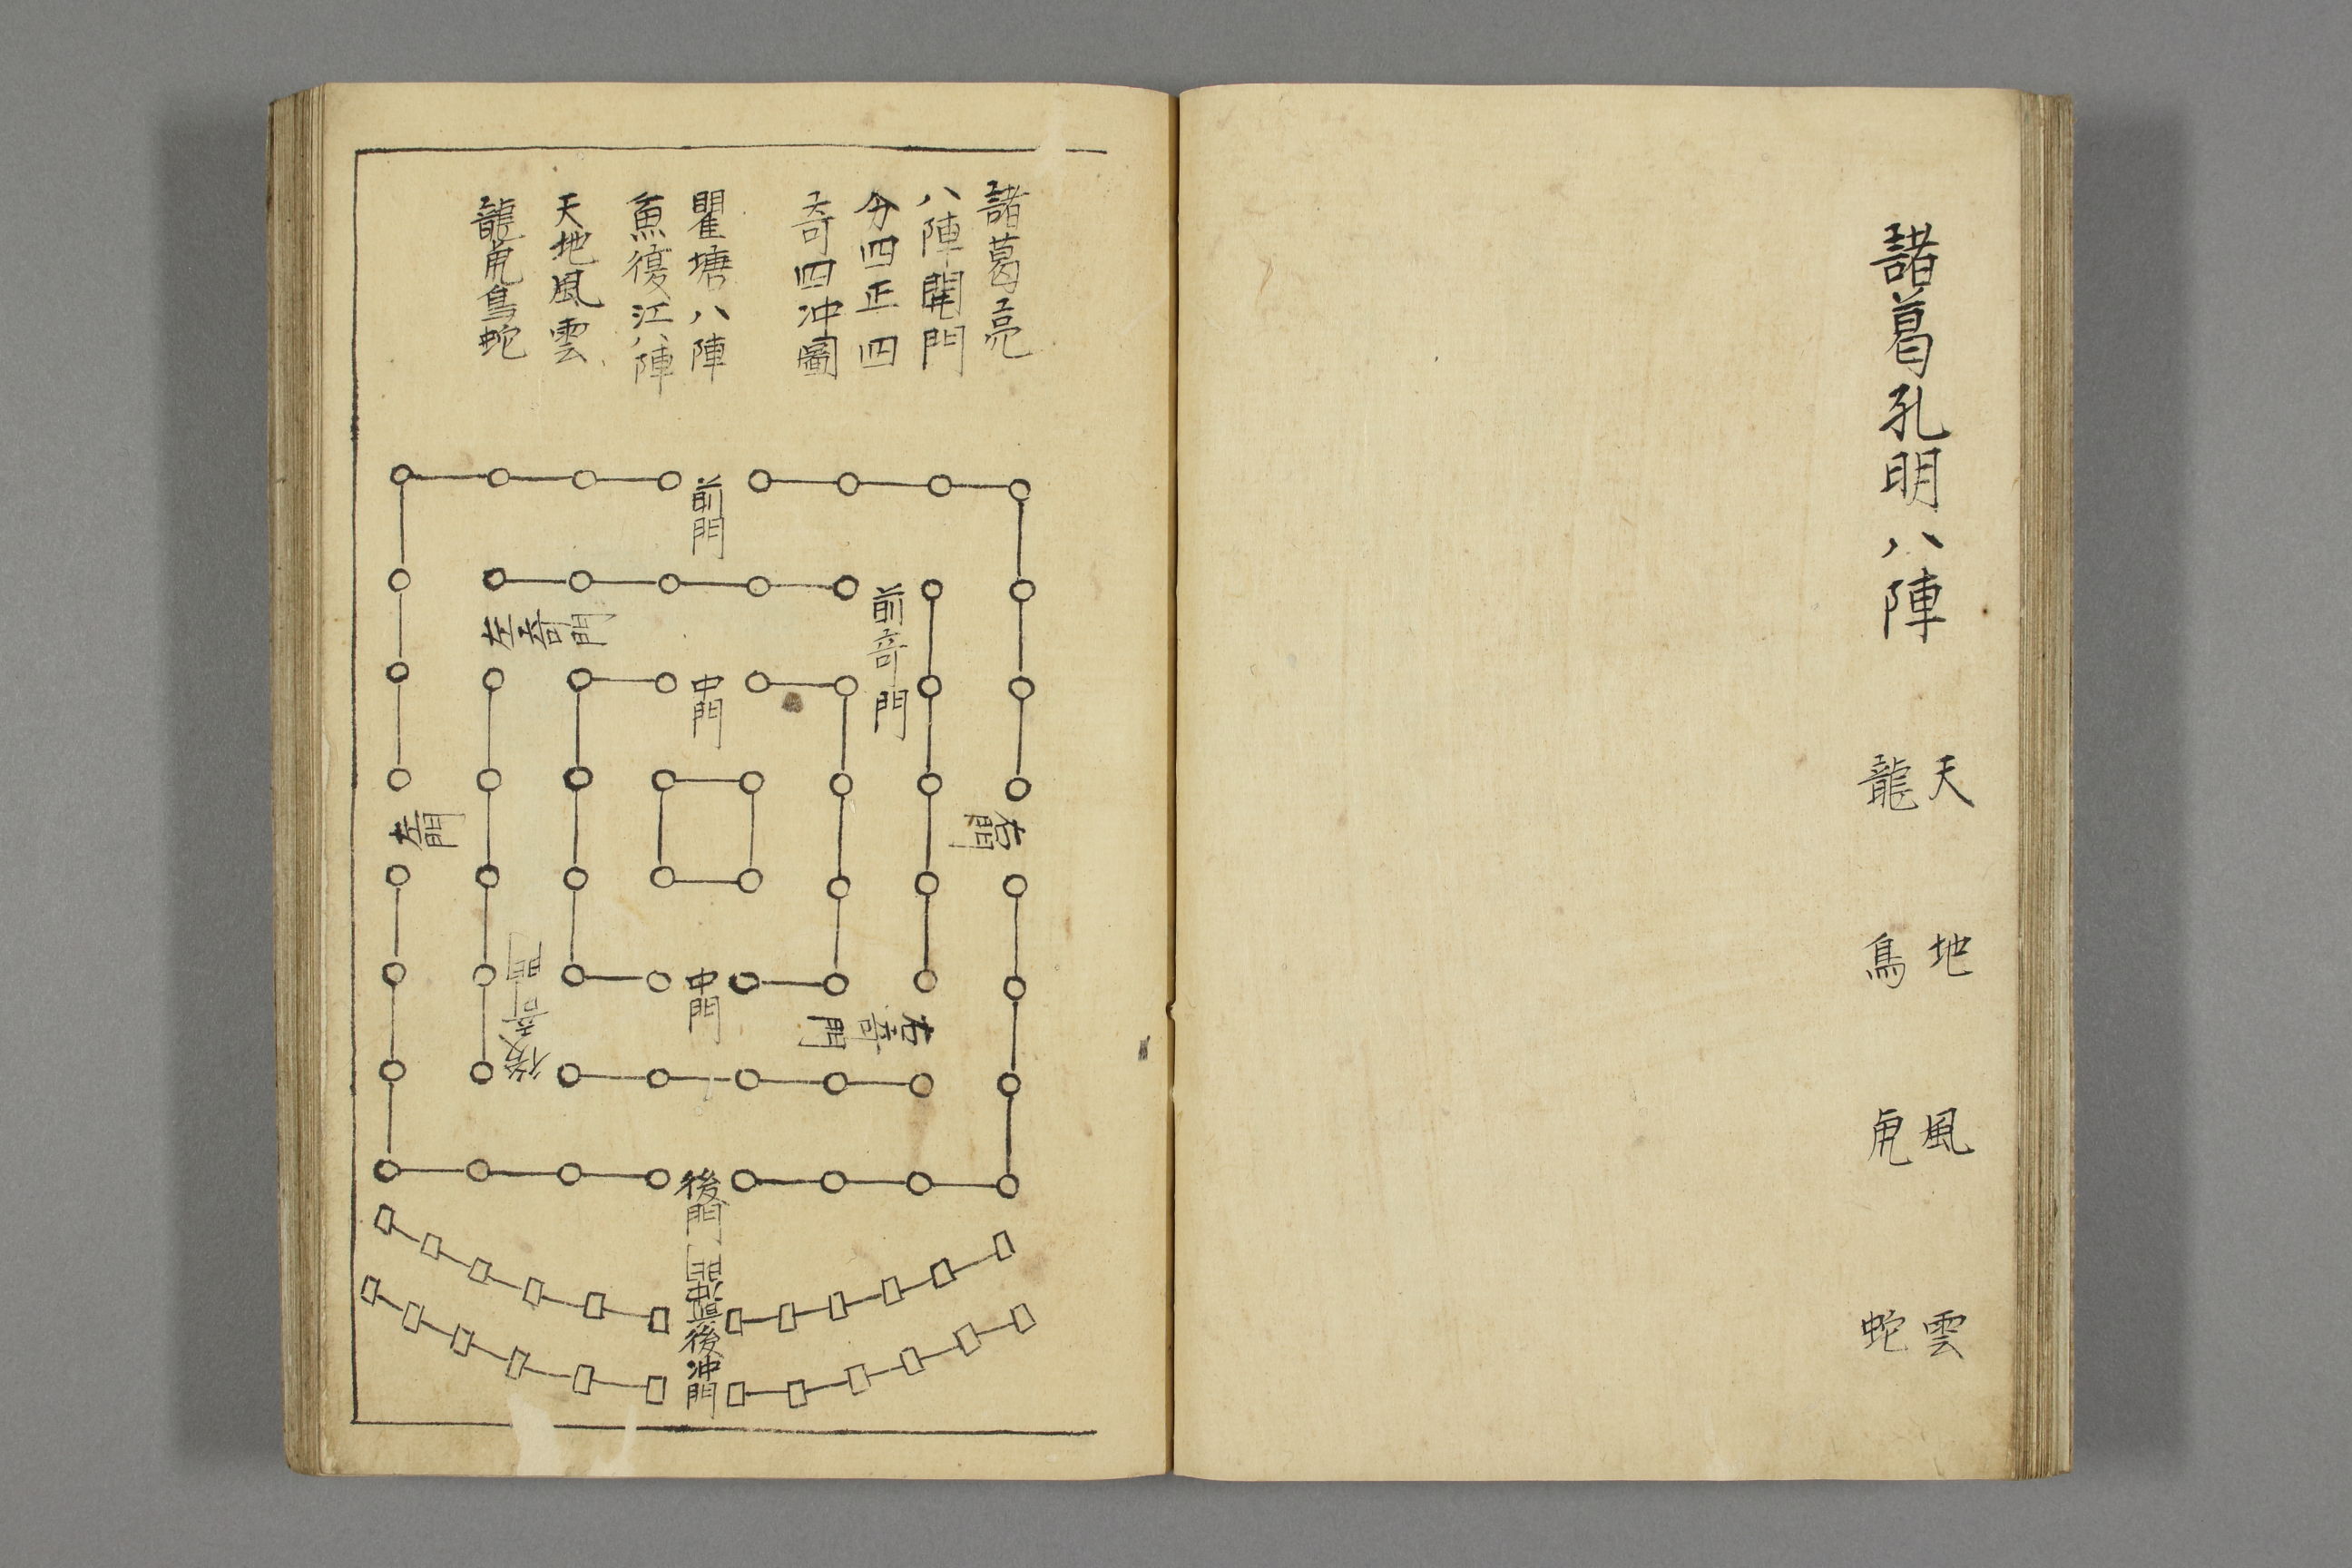 諸葛孔明八陣
天 地 風 雲
龍 鳥 虎 蛇
諸葛亮
八陣開門
分四正四
奇四冲圖
瞿塘八陣
魚復江八陣
天地風雲
龍虎鳥蛇
前門
前奇門
左奇門
中門
左門
右門
後奇門
中門
右奇門
後門
冲門
後冲門